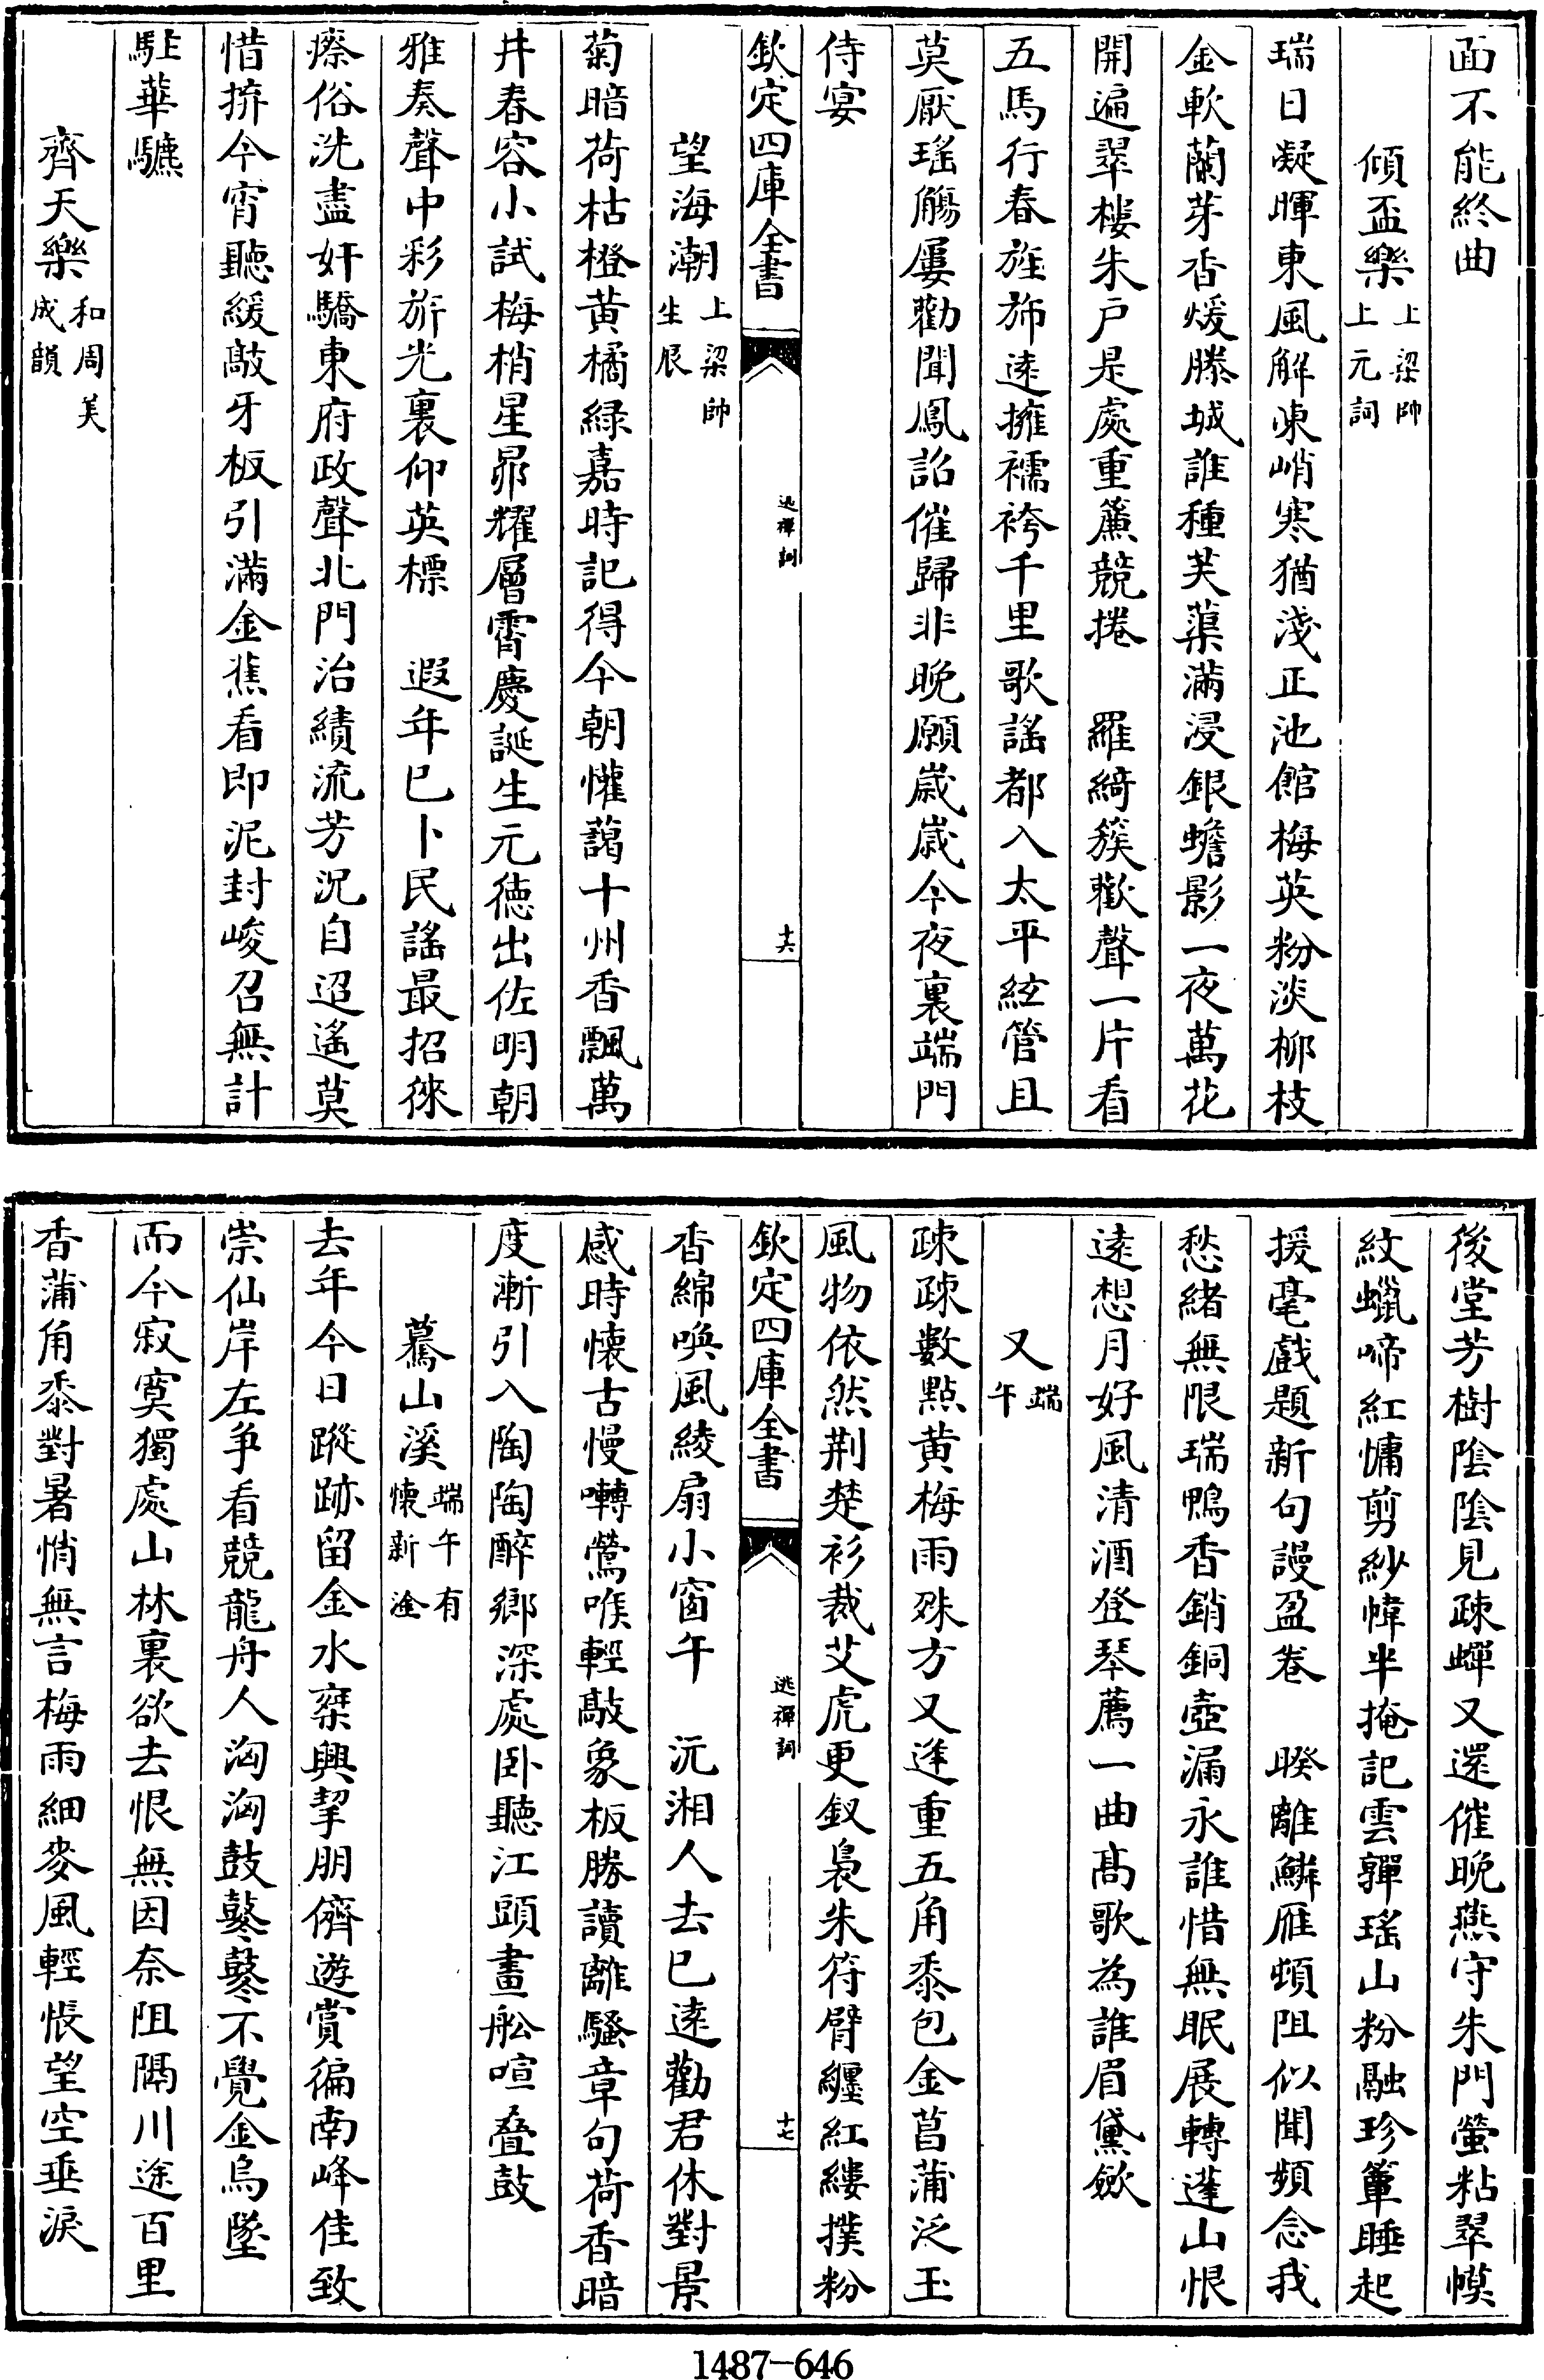 面不能終曲
傾盃樂上梁帥上元詞
瑞日凝暉東風解凍峭寒猶淺正池館梅英粉淡柳枝
金軟蘭芽香煖滕城誰種芙蕖滿浸銀蟾影一夜萬花
開遍翠樓朱戶是處重簾競捲　羅綺簇歡聲一片看
五馬行春旌旆逺擁襦袴千里歌謡都入太平絃管且
莫厭瑤觴屢勸聞鳳詔催歸非晚願歳歳今夜裏端門
侍宴
欽定四庫全書
逃禪詞
十六
望海潮上梁帥生辰
菊暗荷枯橙黄橘緑嘉時記得今朝懽藹十州香飄萬
井春容小試梅梢星昴耀層霄慶誕生元德出佐明朝
雅奏聲中彩旂光裏仰英標　遐年已卜民謡最招徠
瘵俗洗盡奸驕東府政聲北門治績流芳況自迢遙莫
惜拚今宵聽緩敲牙板引滿金蕉看即泥封峻召無計
駐華驦
齊天樂和周美成韻
後堂芳樹陰陰見疎蟬又還催晚燕守朱門螢粘翠幙
紋蠟啼紅慵剪紗幃半掩記雲嚲瑤山粉融珍簟睡起
援毫戲題新句謾盈卷　暌離鱗雁頓阻似聞頻念我
愁緒無限瑞鴨香銷銅壺漏永誰惜無眠展轉蓬山恨
逺想月好風清酒登琴薦一曲髙歌為誰眉黛斂
又端午
疎疎數點黄梅雨殊方又逢重五角黍包金菖蒲泛玉
風物依然荆楚衫裁艾虎更釵裊朱符臂纏紅縷撲粉
欽定四庫全書
逃禪詞
十七
香綿喚風綾扇小窗午　沅湘人去已逺勸君休對景
感時懐古慢囀鶯喉輕敲象板勝讀離騷章句荷香暗
度漸引入陶陶醉鄉深處卧聽江頭畫舩喧叠鼓
驀山溪端午有懐新淦
去年今日蹤跡留金水乘興挈朋儕遊賞徧南峰佳致
崇仙岸左争看競龍舟人洶洶鼓鼕鼕不覺金烏墜
而今寂寞獨處山林裏欲去恨無因奈阻隔川途百里
香蒲角黍對暑悄無言梅雨細麥風輕悵望空垂淚
1487-646